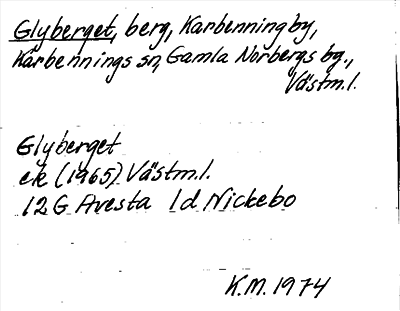 Glyberget, berg, Karbenningby,
Karbennings sn, Gamla Norbergs bg.,
Västm.l.
Glyberget
ek (1965) Västm.l.
12G Avesta 1d Nickebo
K.M. 1974